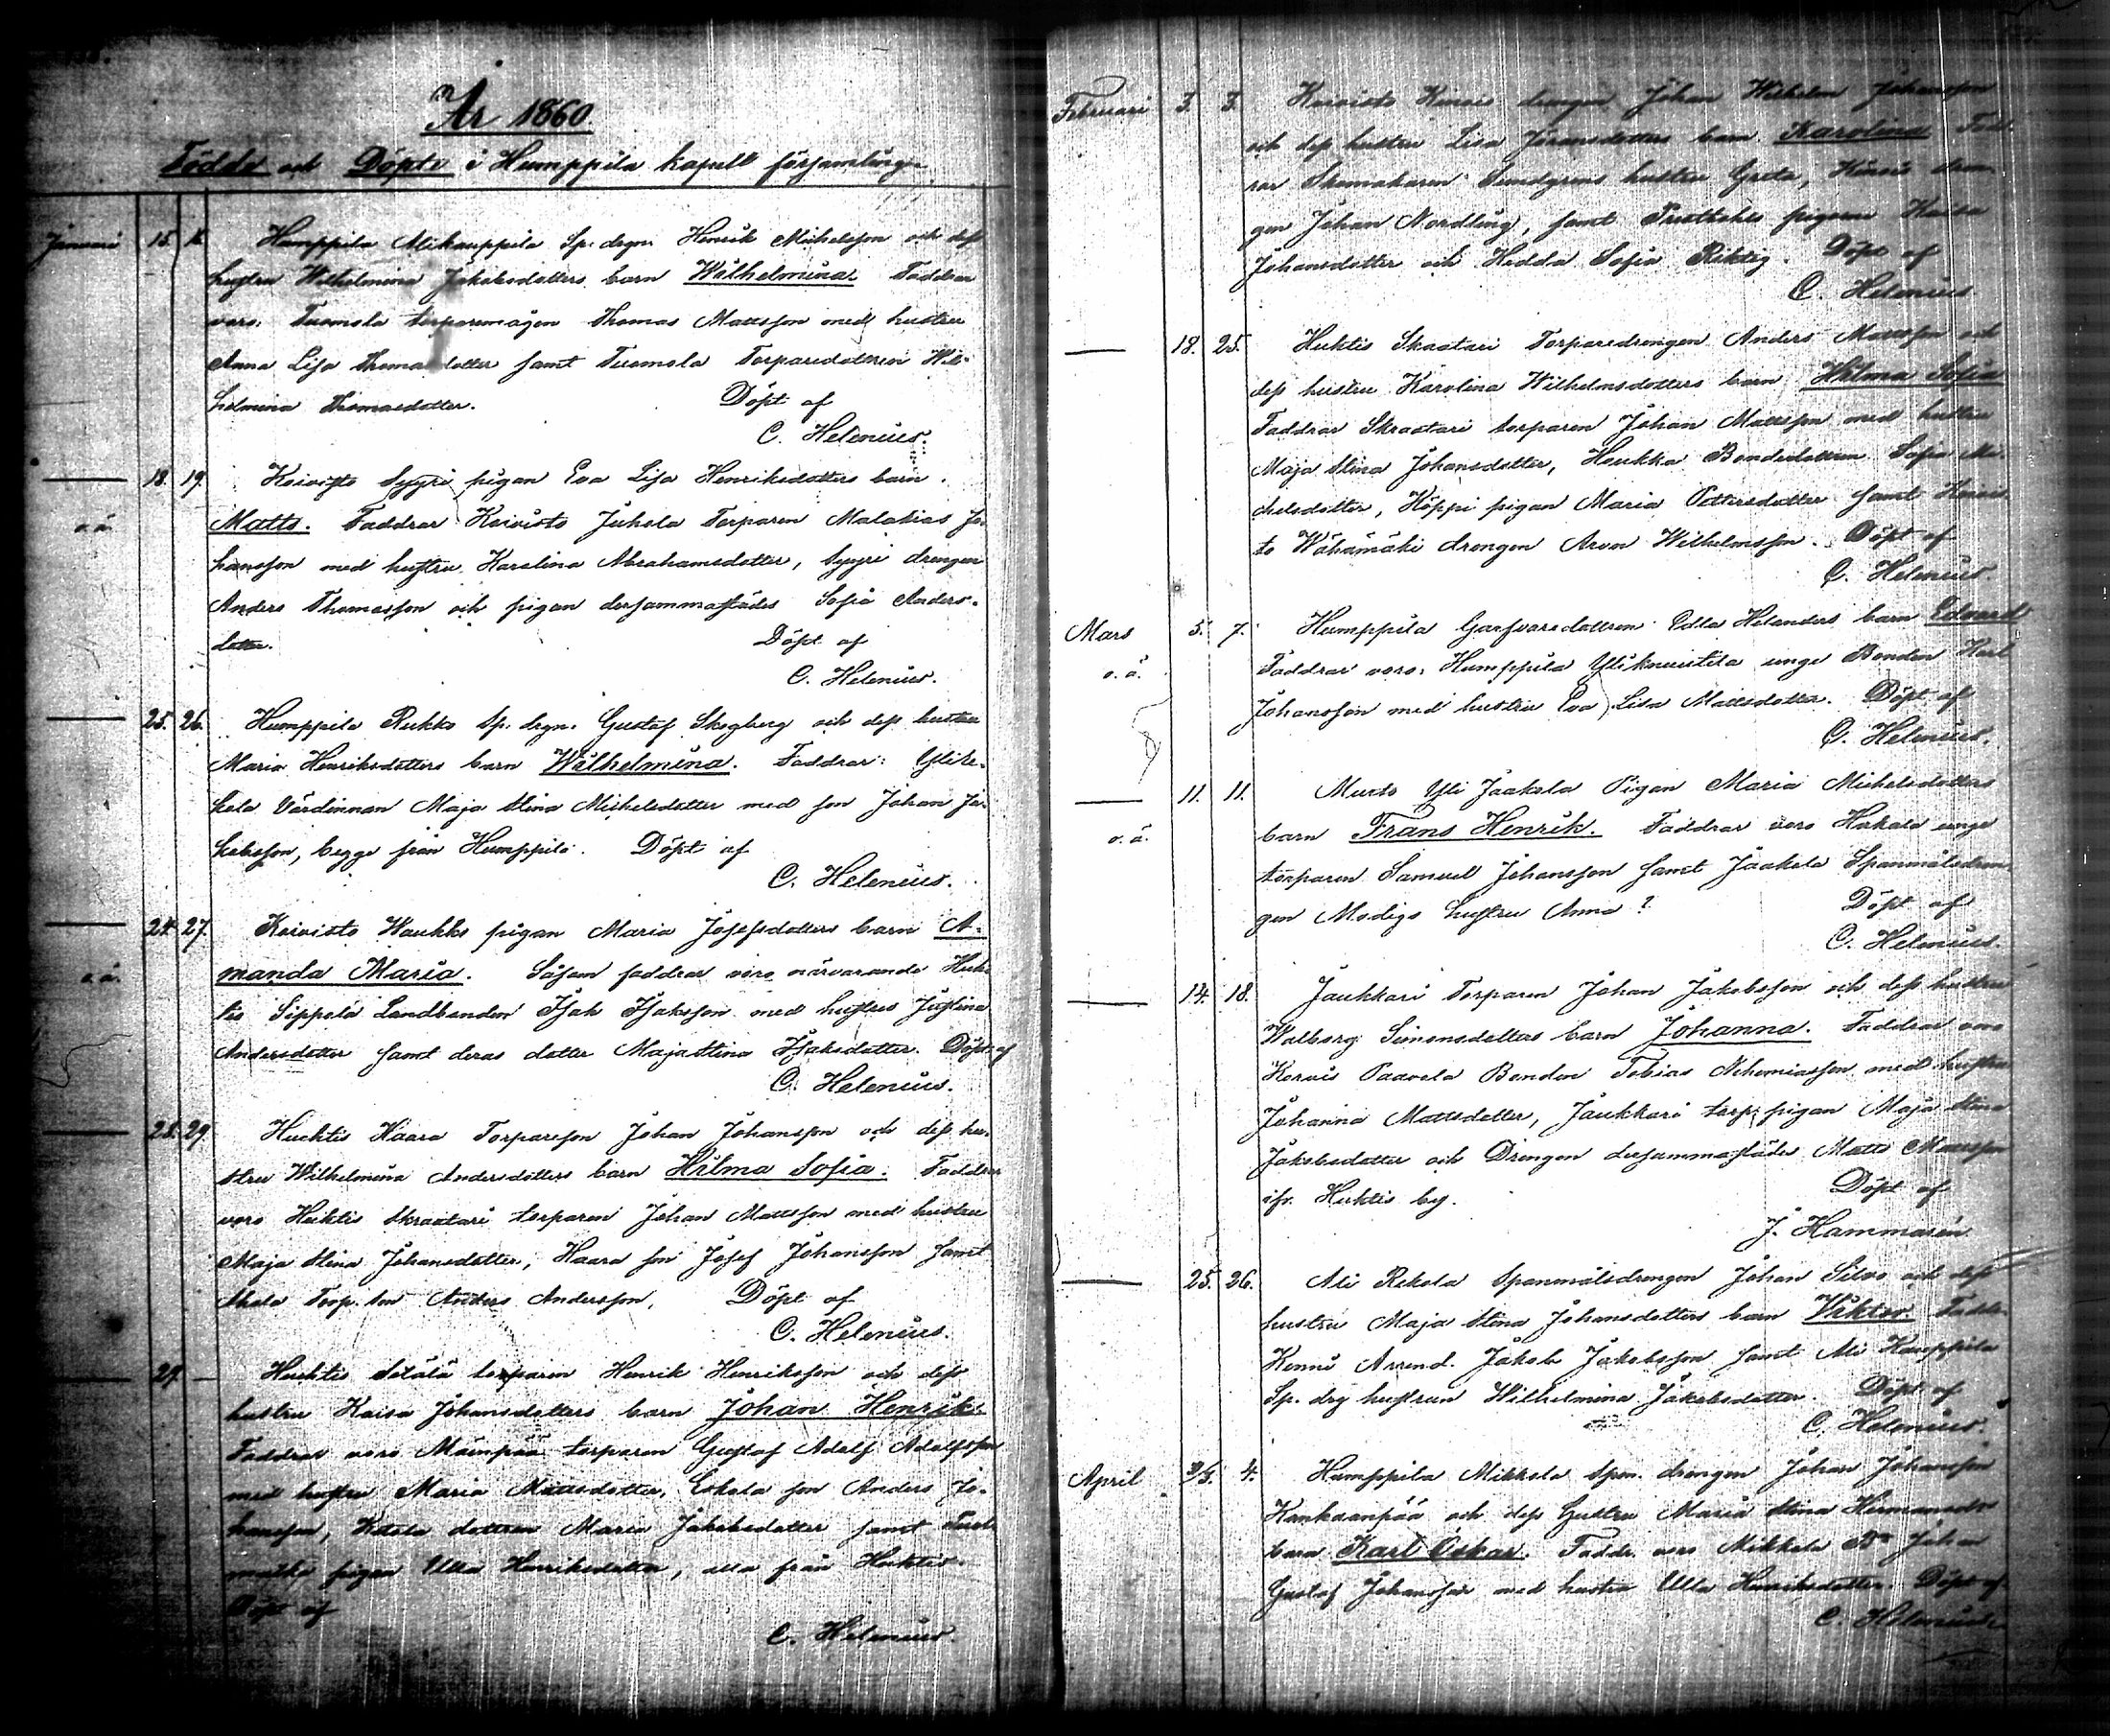 År 1860.
Födde och Döpte i Humppila kapell församlingen
Januari 15. Humppila Alikauppila Sp. dregn. Henrik Michelsson och dess
hustru Wilhelmina Jakobsdotters barn Wilhelmina. Faddrar
voro: Tuomola torparemågen Thomas Mattsson med hustru
Anna Lisa Thomasdotter samt Tuomola Torparedottren Wil-
helmina Thomasdotter. Döpt af
C. Helenius.
18. 19. Koivisto Syyri pigan Eva Lisa Henriksdotters barn
o.ä. Matts. Faddrar Koivisto Juhola Torparen Malakias Jo-
hansson med hustru Karolina Abrahamsdotter, Syyri drengen
Anders Thomasson och pigan dersammastädes Sofia Anders-
dotter. Döpt af
C. Helenius.
25. 26. Humppila Rukko Sp. dregn. Gustaf Skogberg och dess hustru
Maria Henriksdotters barn Wilhelmina. Faddrar:
Värdinnan Maja Stina Michelsdotter med son Johan Ja-
kobsson, begge från Humppila. Döpt af
C. Helenius.
24. 27. Koivisto Haukko pigan Maria Josefsdotters barn A-
o.ä. manda Maria. Såsom faddrar voro närvarande Huh-
tis Sippola Landbonden Isak Isaksson med hustru Justina
Andersdotter samt deras dotter Maja Stina Isaksdotter. Döpt af
C. Helenius.
28. 29. Huhtis Haara Torpareson Johan Johansson och dess hu-
stru Wilhelmina Andersdotters barn Hilma Sofia. Faddrar
voro Huhtis Skraatari torparen Johan Mattsson med hustru
Maja Stina Johansdotter, Haara son Josef Johansson samt
Torp. son Anders Andersson. Döpt af
C. Helenius.
29. — Huhtis Sitälä torparen Henrik Henriksson och dess
hustru Kaisa Johansdotters barn Johan Henrik.
Faddrar voro Mäenpää torparen Gustaf Adolf Adolfsson
med hustru Maria Mattsdotter, Eskola son Anders Jo-
hansson, dottren Maria Jakobsdotter samt
pigan Ulla Henriksdotter, alla från Huhtis.
Döpt af
C. Helenius.
Februari 3. 3. Koivisto drengen Johan Wilhelm Johansson
och dess hustru Lisa Göransdotters barn Karolina Fad-
rar Skomakaren hustru Greta, dren-
gen Johan Nordling, samt pigorna Kaisa
Johansdotter och Hedda Sofia Riktig. Döpt af
C. Helenius.
18. 25. Huhtis Skraatari Torparedrengen Anders Mattsson och
dess hustru Karolina Wilhelmsdotters barn Hilma Sofia
Faddrar Skraatari torparen Johan Mattsson med hustru
Maja Stina Johansdotter, Haukka Bondedottren Sofia Mi-
chelsdotter, Köppi pigan Maria Pettersdotter samt Koivis-
to Wähämäki drengen Arvon Wilhelmsson. Döpt af
C. Helenius.
Mars 5. 7. Humppila Garfvaredottren Helanders barn Edvard
o.ä. Faddrar voro: Humppila unge Bonden Karl
Johansson med hustru Eva Lisa Mattsdotter. Döpt af
C. Helenius.
11. 11. Murto Yli Jaakola Pigan Maria Michelsdotters
o.ä. barn Frans Henrik. Faddrar voro Hakala unge
torparen Samuel Johansson samt Jaakola Spanmålsdren-
gen Modigs hustru Anna? Döpt af
C. Helenius.
14. 18. Jaukkari Torparen Johan Jakobsson och dess hustru
Walborg Simonsdotters barn Johanna. Faddrar voro
Paavola Bonden Tobias Nehemiasson med hustru
Johanna Mattsdotter, Jaukkari torp. pigan Maja Stina
Jakobsdotter och Drengen dersammastädes Matts Mattsson
ifr. Huhtis by. Döpt af
J. Hammarén
25. 26. Ali Rekola Spanmålsdrengen Johan Silvo och dess
hustru Maja Stina Johansdotters barn Viktor. Faddr.
Kenni Arrend. Jakob Jakobsson samt Ali Kauppila
Sp. drg hustrun Wilhelmina Jakobsdotter. Döpt af
C. Helenius.
April 4. Humppila Mikkola Spm. drengen Johan Johansson
Kankaanpää och dess Hustru Maria Stina Hermansdr
barn Karl Oskar. Faddr. voro Mikkola Johan
Gustaf Johansson med hustru Ulla Henriksdotter. Döpt af
C. Helenius.